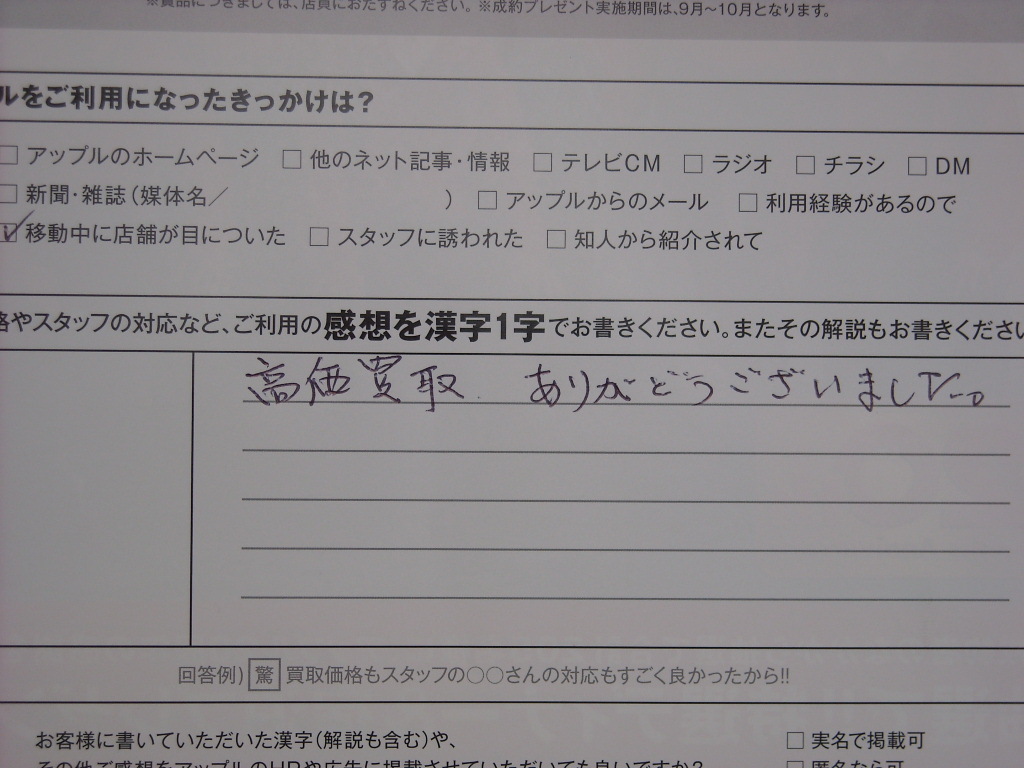 ※賞品につきましては、店員におたずねください。 ※成約プレゼント実施期間は、9月～10月となります。
ルをご利用になったきっかけは？
□ アップルのホームページ □ 他のネット記事・情報 □ テレビCM □ ラジオ □ チラシ □ DM
□ 新聞・雑誌（媒体名／ ） □ アップルからのメール □ 利用経験があるので
☑ 移動中に店舗が目についた □ スタッフに誘われた □ 知人から紹介されて
格やスタッフの対応など、ご利用の感想を漢字1字でお書きください。またその解説もお書きくださ
高価買取 ありがどうございました。
回答例) 驚 買取価格もスタッフの○○さんの対応もすごく良かったから!!
お客様に書いていただいた漢字（解説も含む）や、
□ 実名で掲載可
その他ご感想をアップルのHPや広告に掲載させていただいても良いですか？
□ 匿名なら可